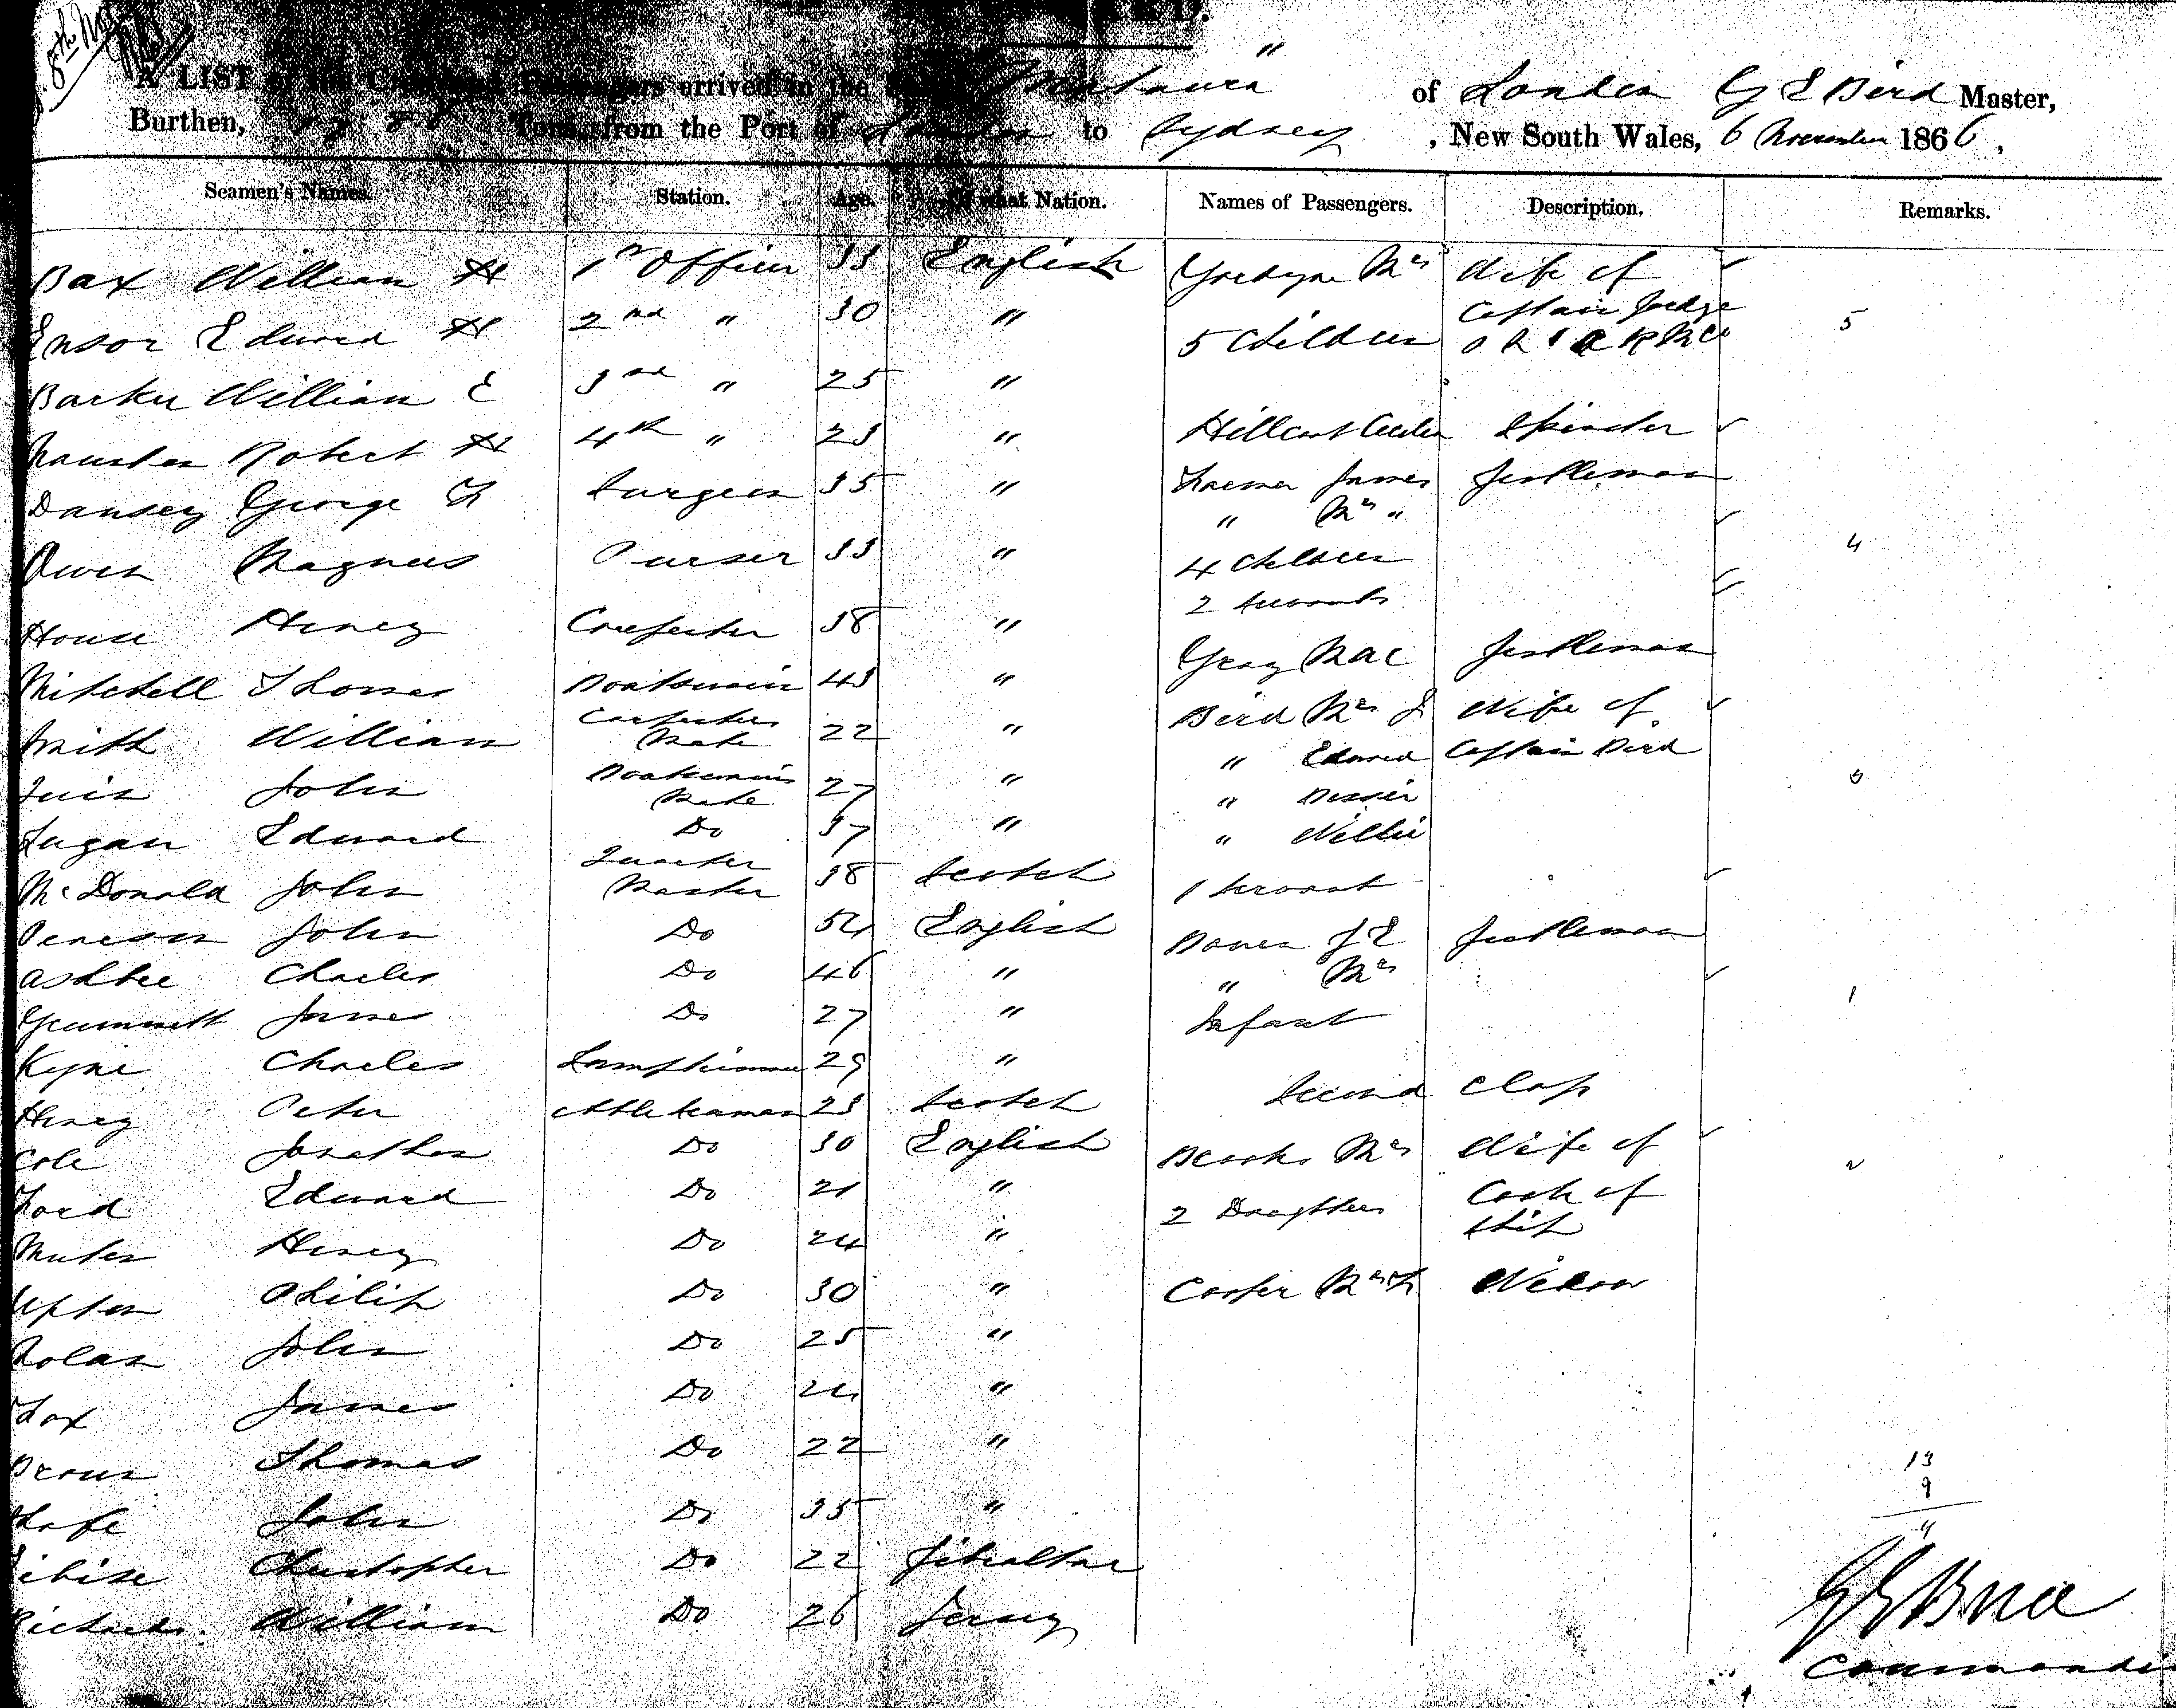 8th
A LIST of the Crew and Passengers arrived in the " of London G E Bird Master,
Burthen, Tons, from the Port of London to Sydney, New South Wales, 6 November 1866,
Seamen's Names. Station. Age. Of what Nation. Names of Passengers. Description. Remarks.
Bax William H 1st Officer 33 English Mrs Wife of
Captain Judge
Ensor Edward H 2nd " 30 " 5 Children 5
Barker William E 3rd " 25 "
Robert H 4th " 23 " Spinster
Dansey George F Surgeon 35 " James Gentleman
" Mrs "
Owen Magnus Purser 33 " 4 Children 4
2 Servants
House Henry Carpenter 38 "
Gray Mac Gentleman
Mitchell Thomas Boatswain 43 " Bird Mrs J Wife of
Smith William Carpenters Mate 22 " " Edward Captain Bird
John Boatswains Mate 27 " " Bessie 3
Edward Do 37 " " Willie
McDonald John Quarter Master 38 Scotch 1 Servant
John Do 54 English J E Gentleman
Ashbee Charles Do 46 " " Mrs
Grummett James Do 27 " Infant 1
Kyne Charles Lamptrimmer 29 "
Second Class
Henry Peter Able Seaman 23 Scotch
Cole Jonathan Do 30 English Brooks Mrs Wife of 2
Ford Edward Do 21 " 2 Daughters Cook of
Ship
Henry Do 24 "
Upton Philip Do 30 " Cooper Mrs H Widow
Nolan John Do 25 "
Fox James Do 24 "
Brown Thomas Do 22 "
John Do 35 "
13
9
4
Christopher Do 22 Gibraltar
Richards William Do 26 Jersey
G E Bird
Commander